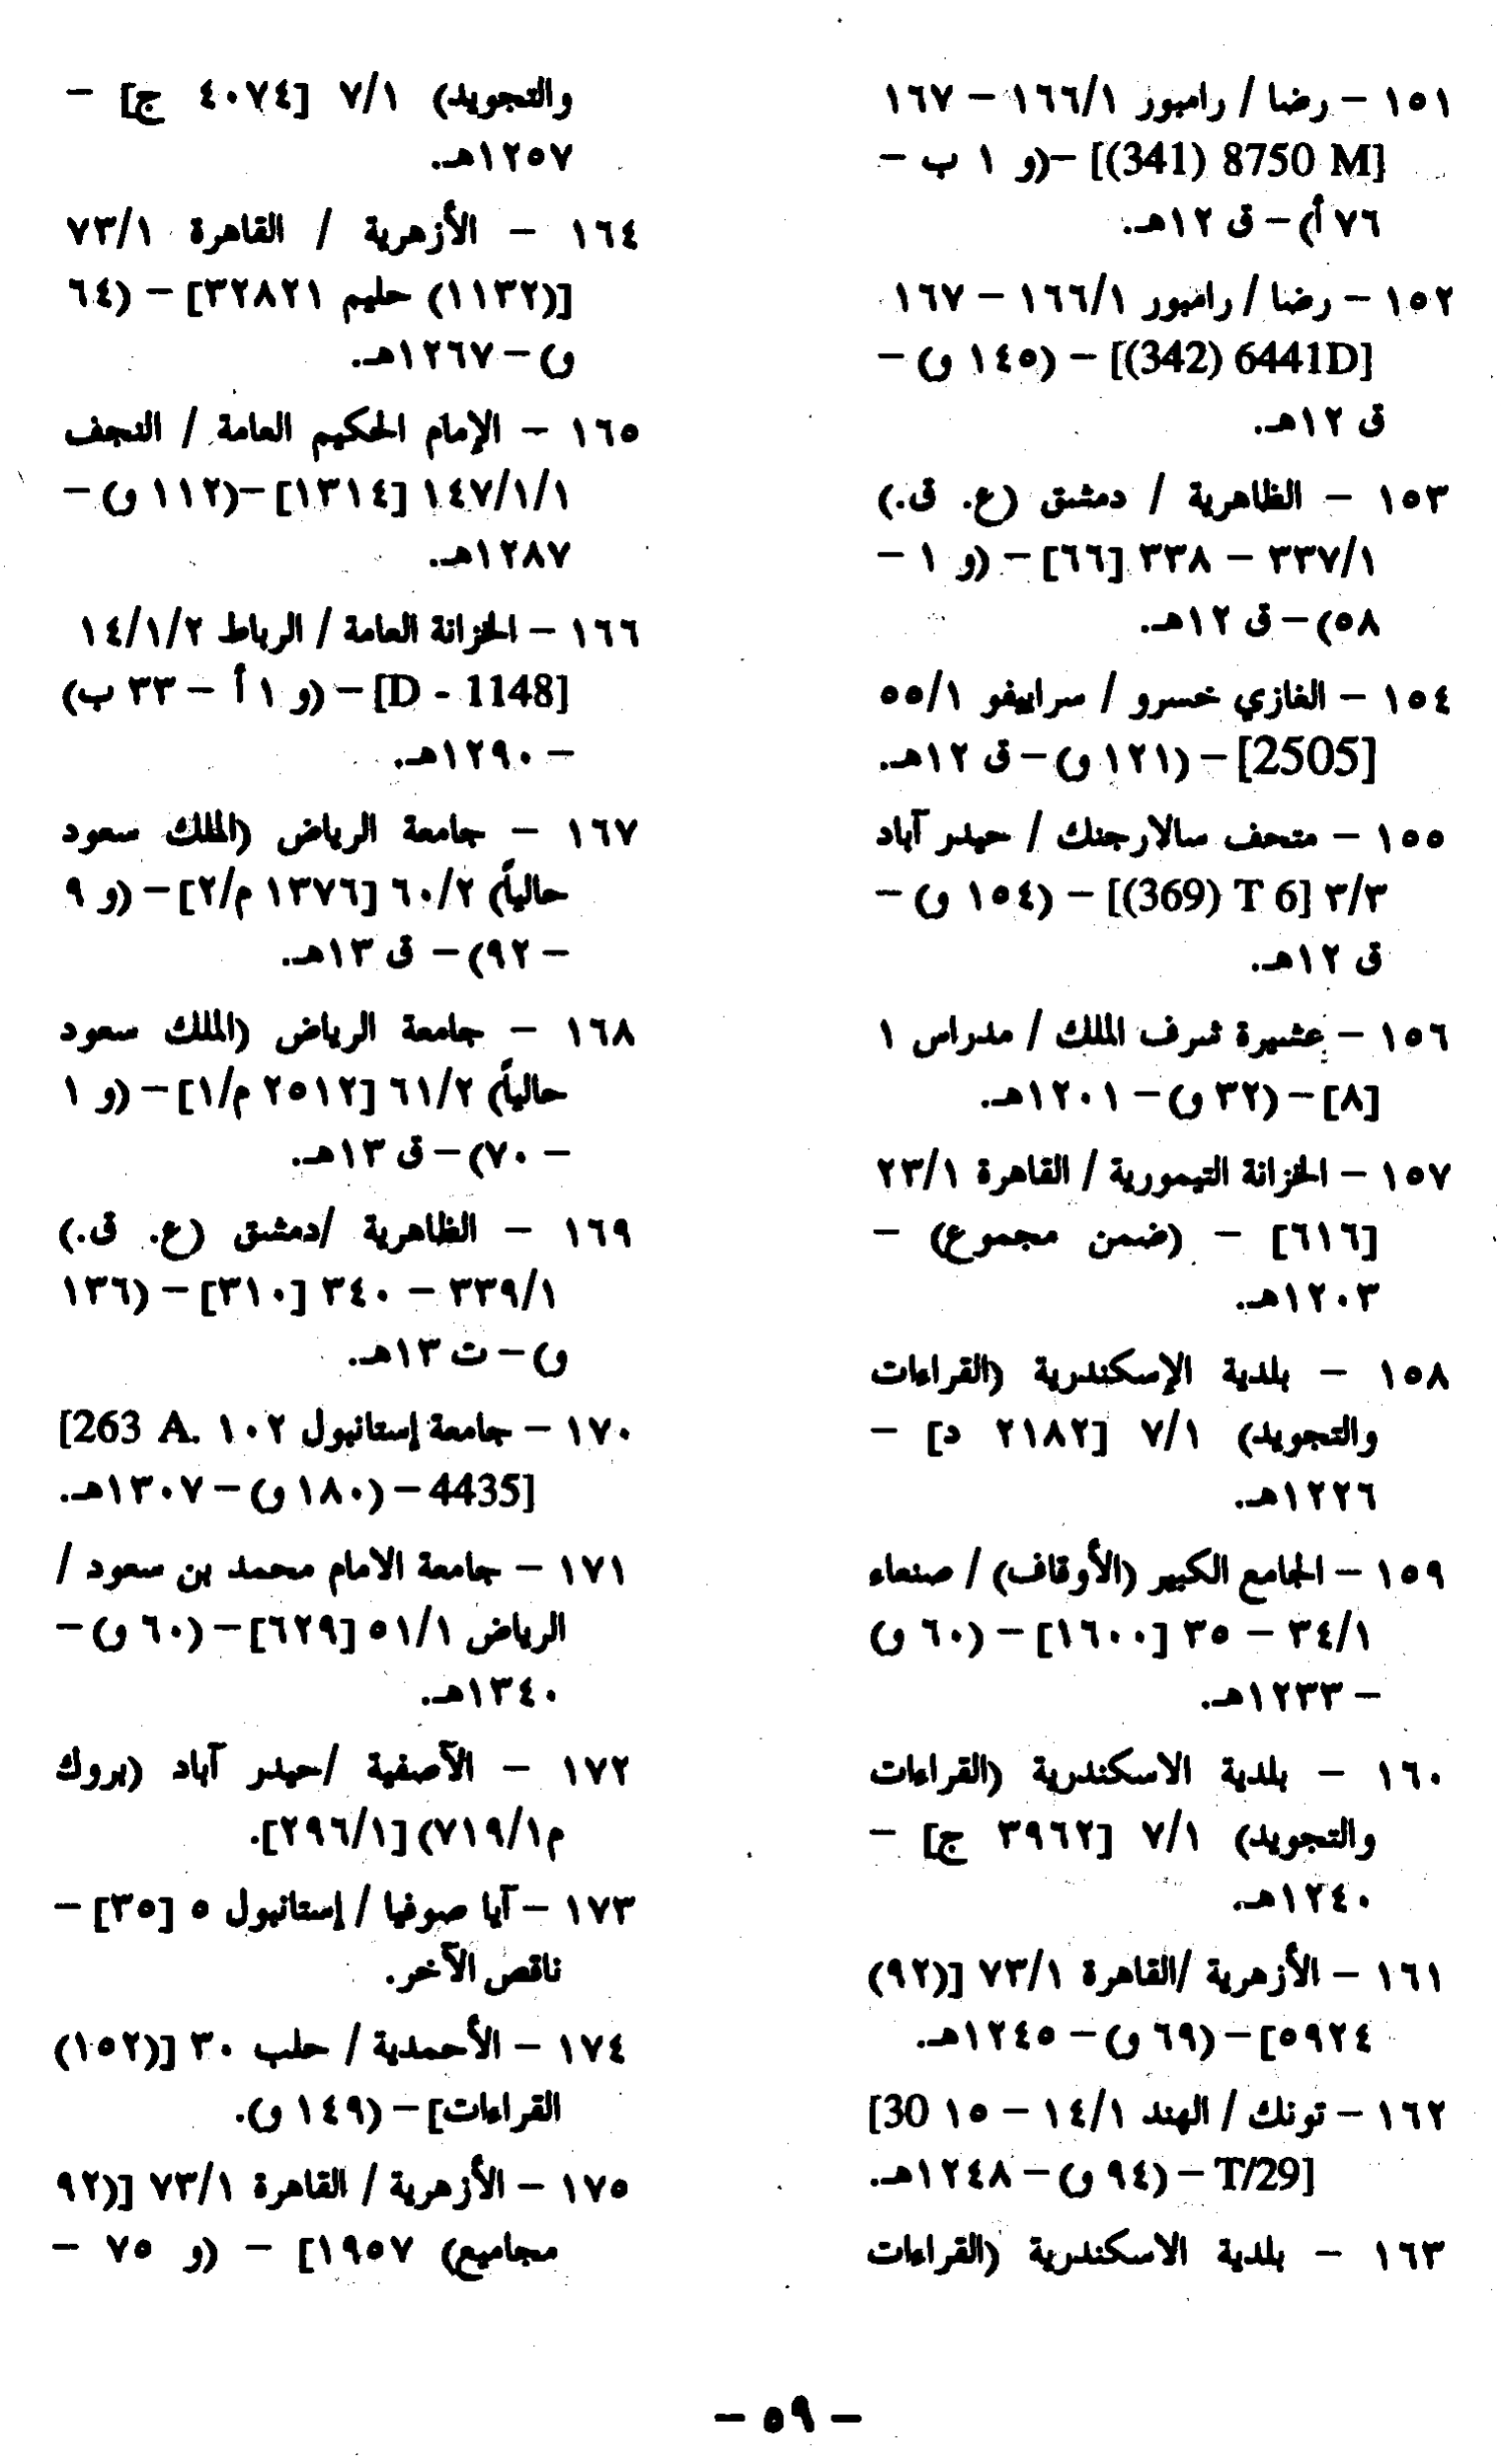 ١٥١ – رضا / رامبور ١٦٦/١ – ١٦٧
[(341) 8750 M] –(و ١ ب –
٧٦ أ) – ق ١٢هـ.
١٥٢ – رضا / رامبور ١٦٦/١ – ١٦٧
[(342) 6441D] – (١٤٥ و) –
ق ١٢هـ.
١٥٣ – الظاهرية / دمشق (ع. ق.)
٣٣٧/١ – ٣٣٨ [٦٦] – (و ١ –
٥٨) – ق ١٢هـ.
١٥٤ – الغازي خسرو / سراييفو ٥٥/١
[2505] – (١٢١ و) – ق ١٢هـ.
١٥٥ – متحف سالارجنك / حيدر آباد
٣/٣ [(369) T 6] – (١٥٤ و) –
ق ١٢هـ.
١٥٦ – عشيرة شرف الملك / مدراس ١
[٨] – (٣٢ و) – ١٢٠١هـ.
١٥٧ – الخزانة التيمورية / القاهرة ٢٣/١
[٦١٦] – (ضمن مجموع) –
١٢٠٣هـ.
١٥٨ – بلدية الإسكندرية (القراءات
والتجويد) ٧/١ [٢١٨٢ د] –
١٢٢٦هـ.
١٥٩ – الجامع الكبير (الأوقاف) / صنعاء
٣٤/١ – ٣٥ [١٦٠٠] – (٦٠ و)
– ١٢٣٣هـ.
١٦٠ – بلدية الاسكندرية (القراءات
والتجويد) ٧/١ [٣٩٦٢ ج] –
١٢٤٠هـ.
١٦١ – الأزهرية /القاهرة ٧٣/١ [(٩٢)
٥٩٢٤] – (٦٩ و) – ١٢٤٥هـ.
١٦٢ – تونك / الهند ١٤/١ – ١٥ [30
T/29] – (٩٤ و) – ١٢٤٨هـ.
١٦٣ – بلدية الاسكندرية (القراءات
والتجويد) ٧/١ [٤٠٧٤ ج] –
١٢٥٧هـ.
١٦٤ – الأزهرية / القاهرة ٧٣/١
[(١١٣٢) حليم ٣٢٨٢١] – (٦٤
و) – ١٢٦٧هـ.
١٦٥ – الإمام الحكيم العامة / النجف
١٤٧/١/١ [١٣١٤] –(١١٢ و) –
١٢٨٧هـ.
١٦٦ – الخزانة العامة / الرباط ١٤/١/٢
[D - 1148] – (و ١ أ – ٣٣ ب)
– ١٢٩٠هـ.
١٦٧ – جامعة الرياض (الملك سعود
حالياً) ٦٠/٢ [١٣٧٦ م/٢] – (و ٩
– ٩٢) – ق ١٣هـ.
١٦٨ – جامعة الرياض (الملك سعود
حالياً) ٦١/٢ [٢٥١٢ م/١] – (و ١
– ٧٠) – ق ١٣هـ.
١٦٩ – الظاهرية /دمشق (ع. ق.)
٣٣٩/١ – ٣٤٠ [٣١٠] – (١٣٦
و) – ت ١٣هـ.
١٧٠ – جامعة إستانبول ١٠٢ [263 A.
4435] – (١٨٠ و) – ١٣٠٧هـ.
١٧١ – جامعة الامام محمد بن سعود /
الرياض ٥١/١ [٦٢٩] – (٦٠ و) –
١٣٤٠هـ.
١٧٢ – الآصفية /حيدر آباد (بروك
م٧١٩/١) [٢٩٦/١].
١٧٣ – آيا صوفيا / إستانبول ٥ [٣٥] –
ناقص الآخر.
١٧٤ – الأحمدية / حلب ٣٠ [(١٥٢)
القراءات] – (١٤٩ و).
١٧٥ – الأزهرية / القاهرة ٧٣/١ [(٩٢
مجاميع) ١٩٥٧] – (و ٧٥ –
– ٥٩ –